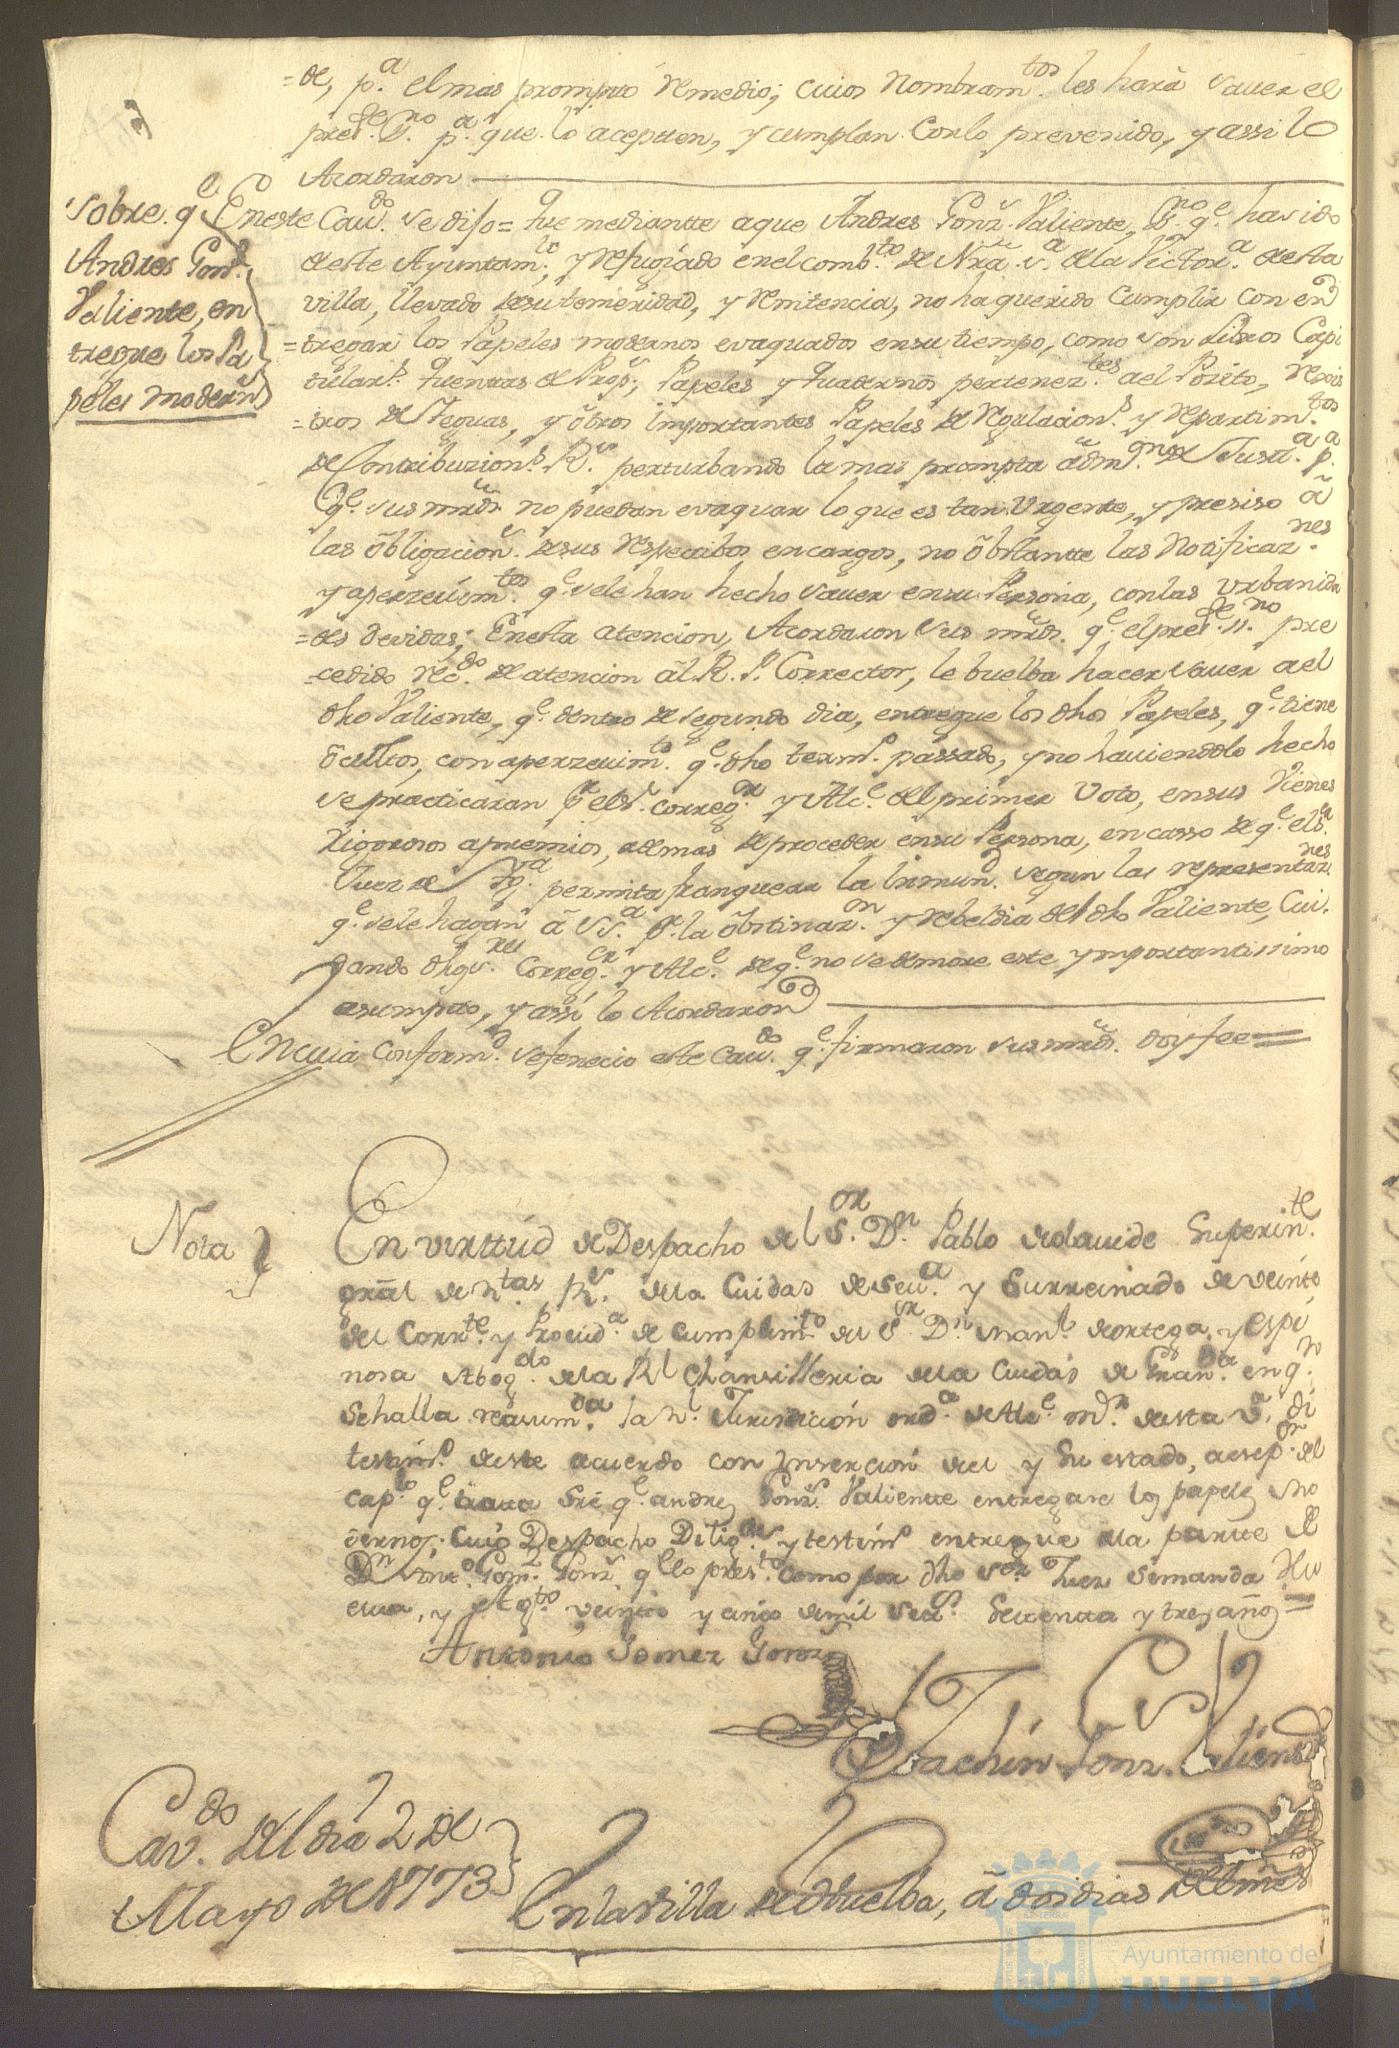 =de, p.ª el mas prompto remedio; cuios Nombram.tos les hará saver el
pres.te S.no p.ª que lo acepten, y cumplan con lo prevenido, y assi lo
Acordaron
Sobre q.e
Andres Gonz.
Valiente, en
tregue los Pa
peles modern.s
En este Cav.do se dijo= Que mediantte a que Andres Gonz.s Valiente, S.no q.e ha sido
de este Ayuntam.to, y refugiado en el comb.to de Nra. S.ª de la Victor.ª de esta
villa, llevado de su temeridad, y renitencia, no ha querido cumplir con en
=tregar los Papeles modernos evaquados en su tiempo, como son Libros Capi
tular.s Quentas de Prop.s, Papeles y Quadernos pertenez.tes a el Posito, rexis
=tros de Yeguas, y ôtros importantes Papeles de regulacion.s y repartim.tos
de Contribuzion.s R.s perturbando la mas prompta adm.on de Just.ª p.ª
q.e sus mrds. no puedan evaquar lo que es tan Urgente, y presiso â
las ôbligacion.s de sus respectibos encargos, no ôbstantte las Notificaz.nes
y aperzevim.tos q.e se le han hecho saver en su Persona, con las urbanida
=des devidas; En esta atencion, Acordaron sus mrds. q.e el pres.te S.no pre
=cedido rec.do de atencion âl R. P. Corrector, le buelba hacer saver a el
dho Valiente, q.e dentro de segundo dia, entregue los dhos Papeles, q.e tiene
ôcultos, con aperzevim.to q.e dho term.o passado, y no haviendolo hecho
se practicaran p.r el S.r Correg.or y Alc.e del primer Voto, en sus Vienes
rigorosos apremios, ademas de proceder en su Persona, en casso de q.e el S.r
Juez de Ygl.ª permita franquear la Inmun.d segun las representaz.nes
q.e se le hagan â S.S.ª p.r la ôbstinaz.on y rebeldia del dho Valiente, Cui.
dando dhos S.res Correg.or y Alc.e de q.e no se demore este ymportantissimo
asumpto, y assi lo Acordaron
En cuia conform.d se fenecio este Cav.do q.e firmaron sus mrds. doy fee=
Nota
En virttud de Despacho del S.or D.n Pablo de Olavide Superin.te
gral de rtas R.s de la Ciudad de Sev.ª y su Reinado de veinte
del Corr.te y Provid.ª de cumplim.to del S.r D.n Man.l de Ortega y Espi
nosa Abog.do de la R.l Chansilleria de la Ciudad de Gran.da en q.n
se halla reasum.da la R.l Jurisdicion ord.ª de Alc.e m.r de esta V.ª di
testim.o deste acuerdo con Insercion del y su estado, a esep.on del
cap.o q.e trata sre q.e Andres Gonz.s Valiente entregase los papeles mo
dernos; cuio Despacho Dilig.as y testim.o entregue a la partte de
D.n Ant.o Gom.s Gonz.s q.e lo pres.to como por dho S.or Juez se manda Hu
elva, y veinte y cinco de mil Setz.s Setenta y tres años=
Antonio Gomez Gonz.s
Joachin Gonz. Valiente
Cav.do del dia 2 de
Mayo de 1773
En la villa de Huelba, â dos dias del mes
Ayuntamiento de
HUELVA